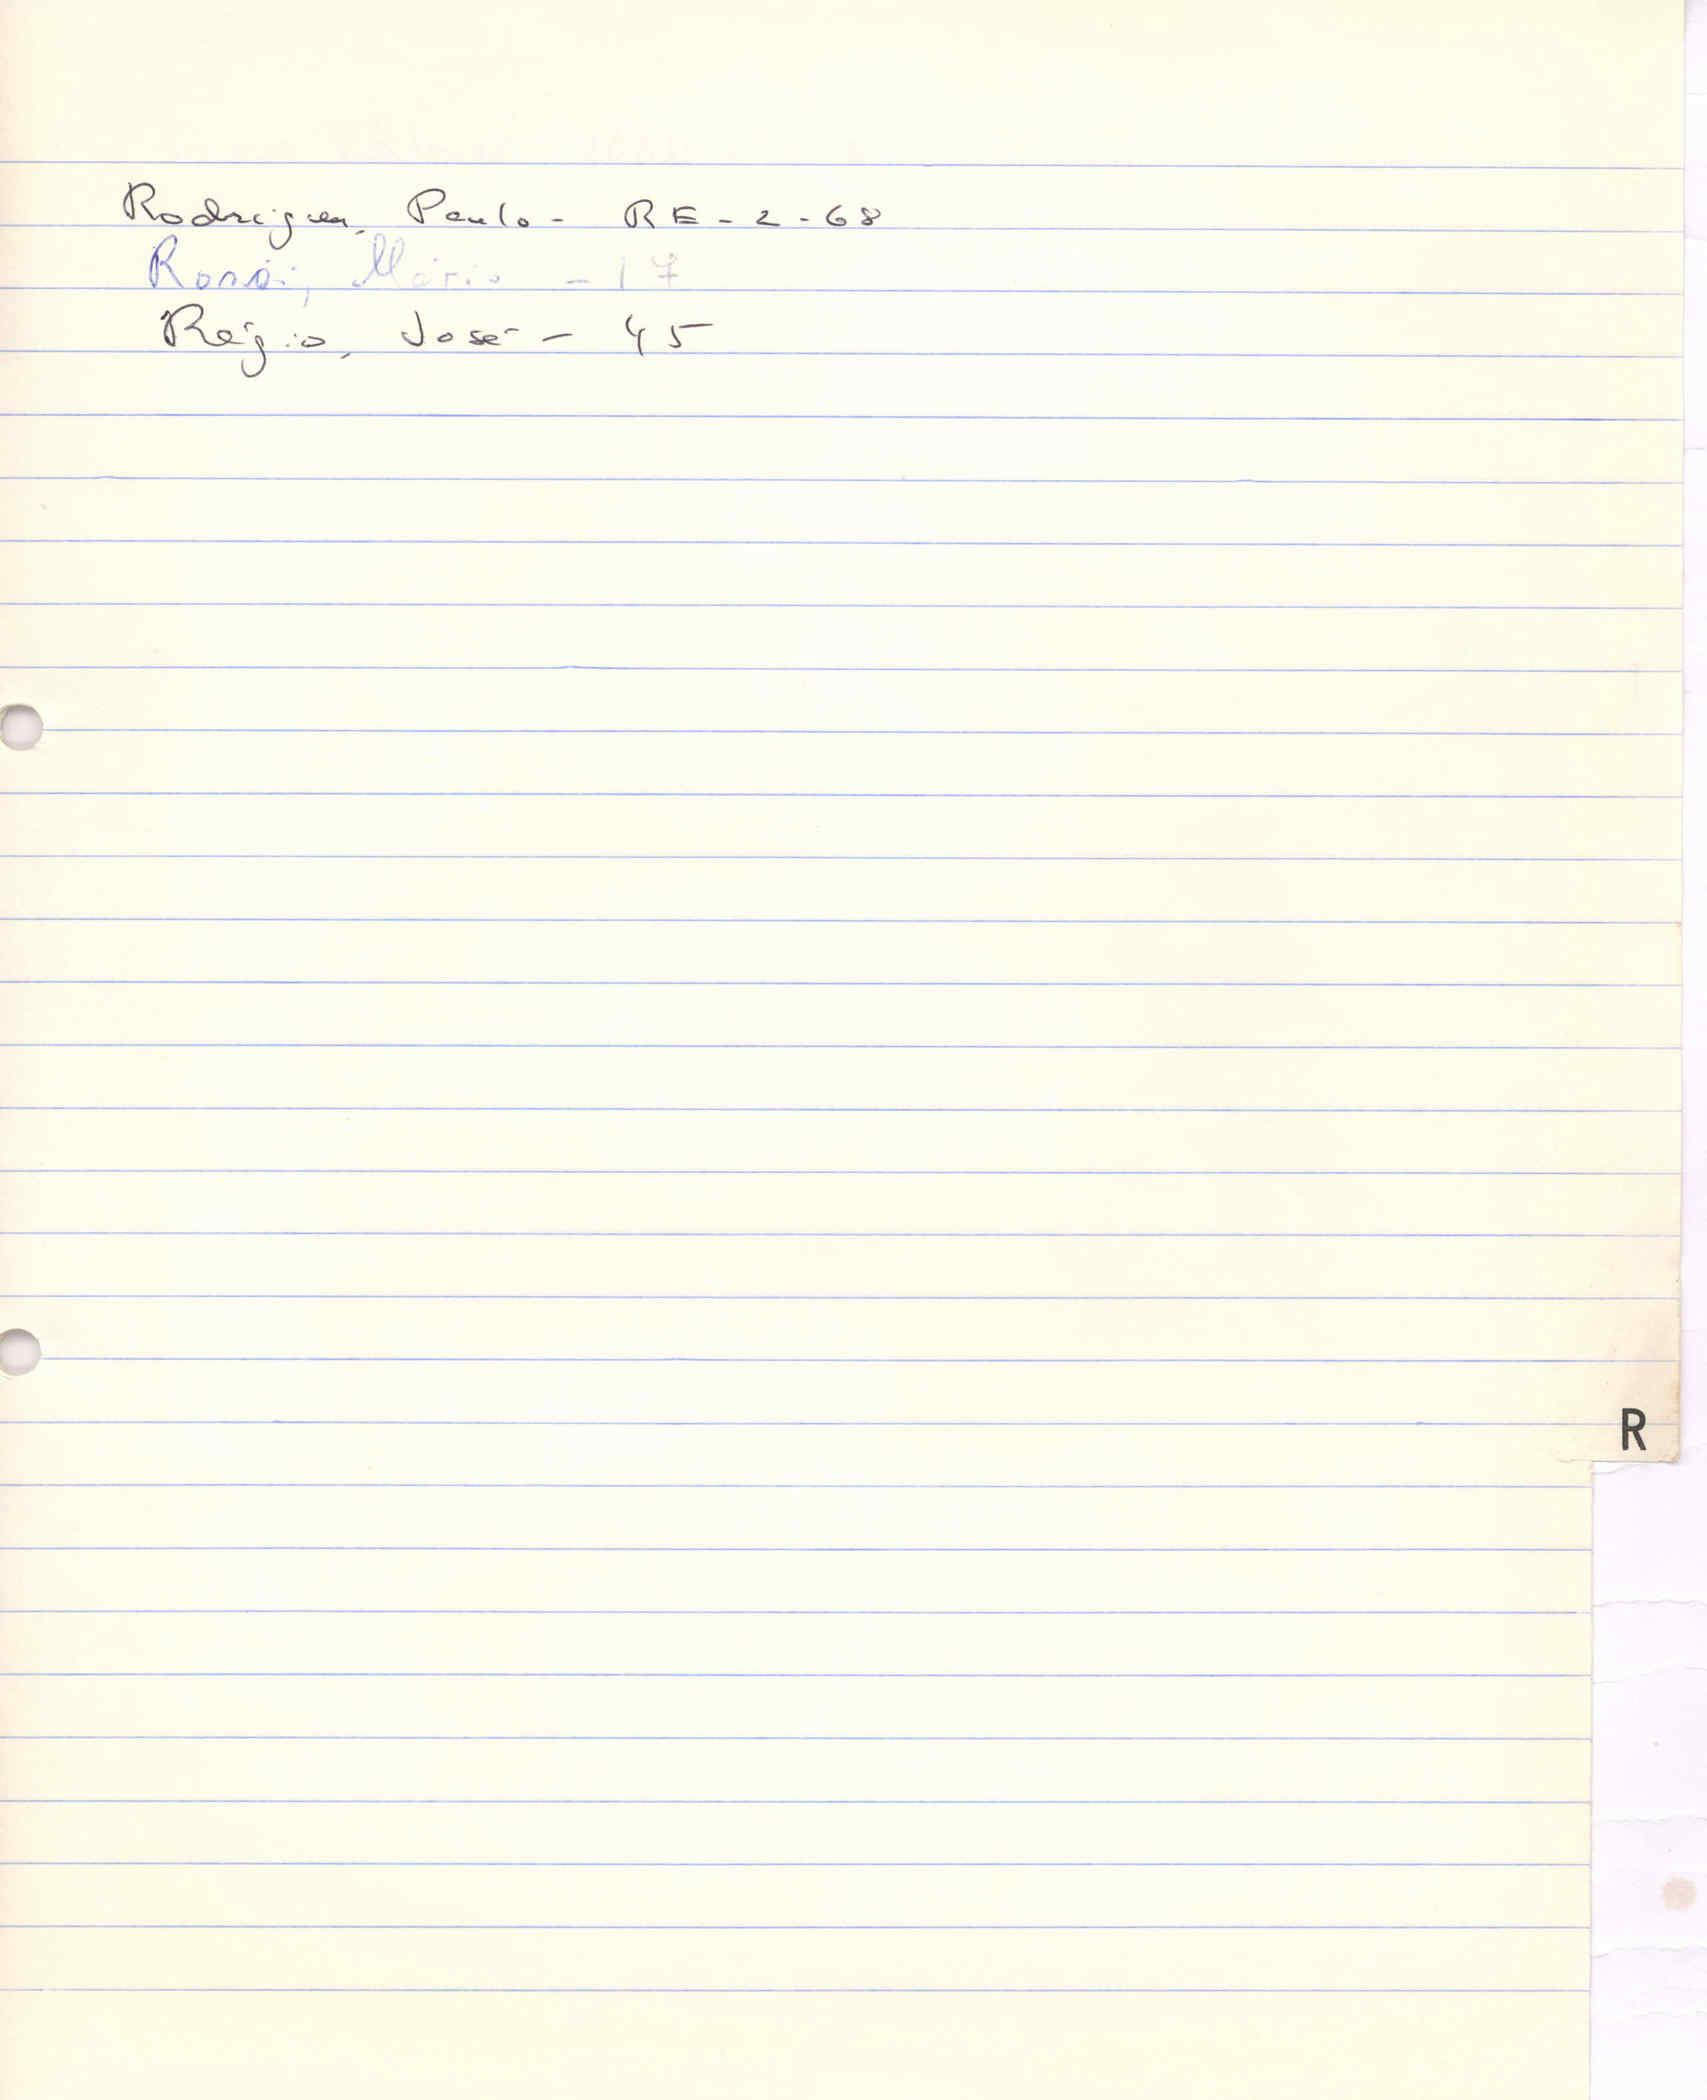 Rodrigues, Paulo - RE - 2 - 68
Rossi, Mário - 17
Régio, José - 45
R